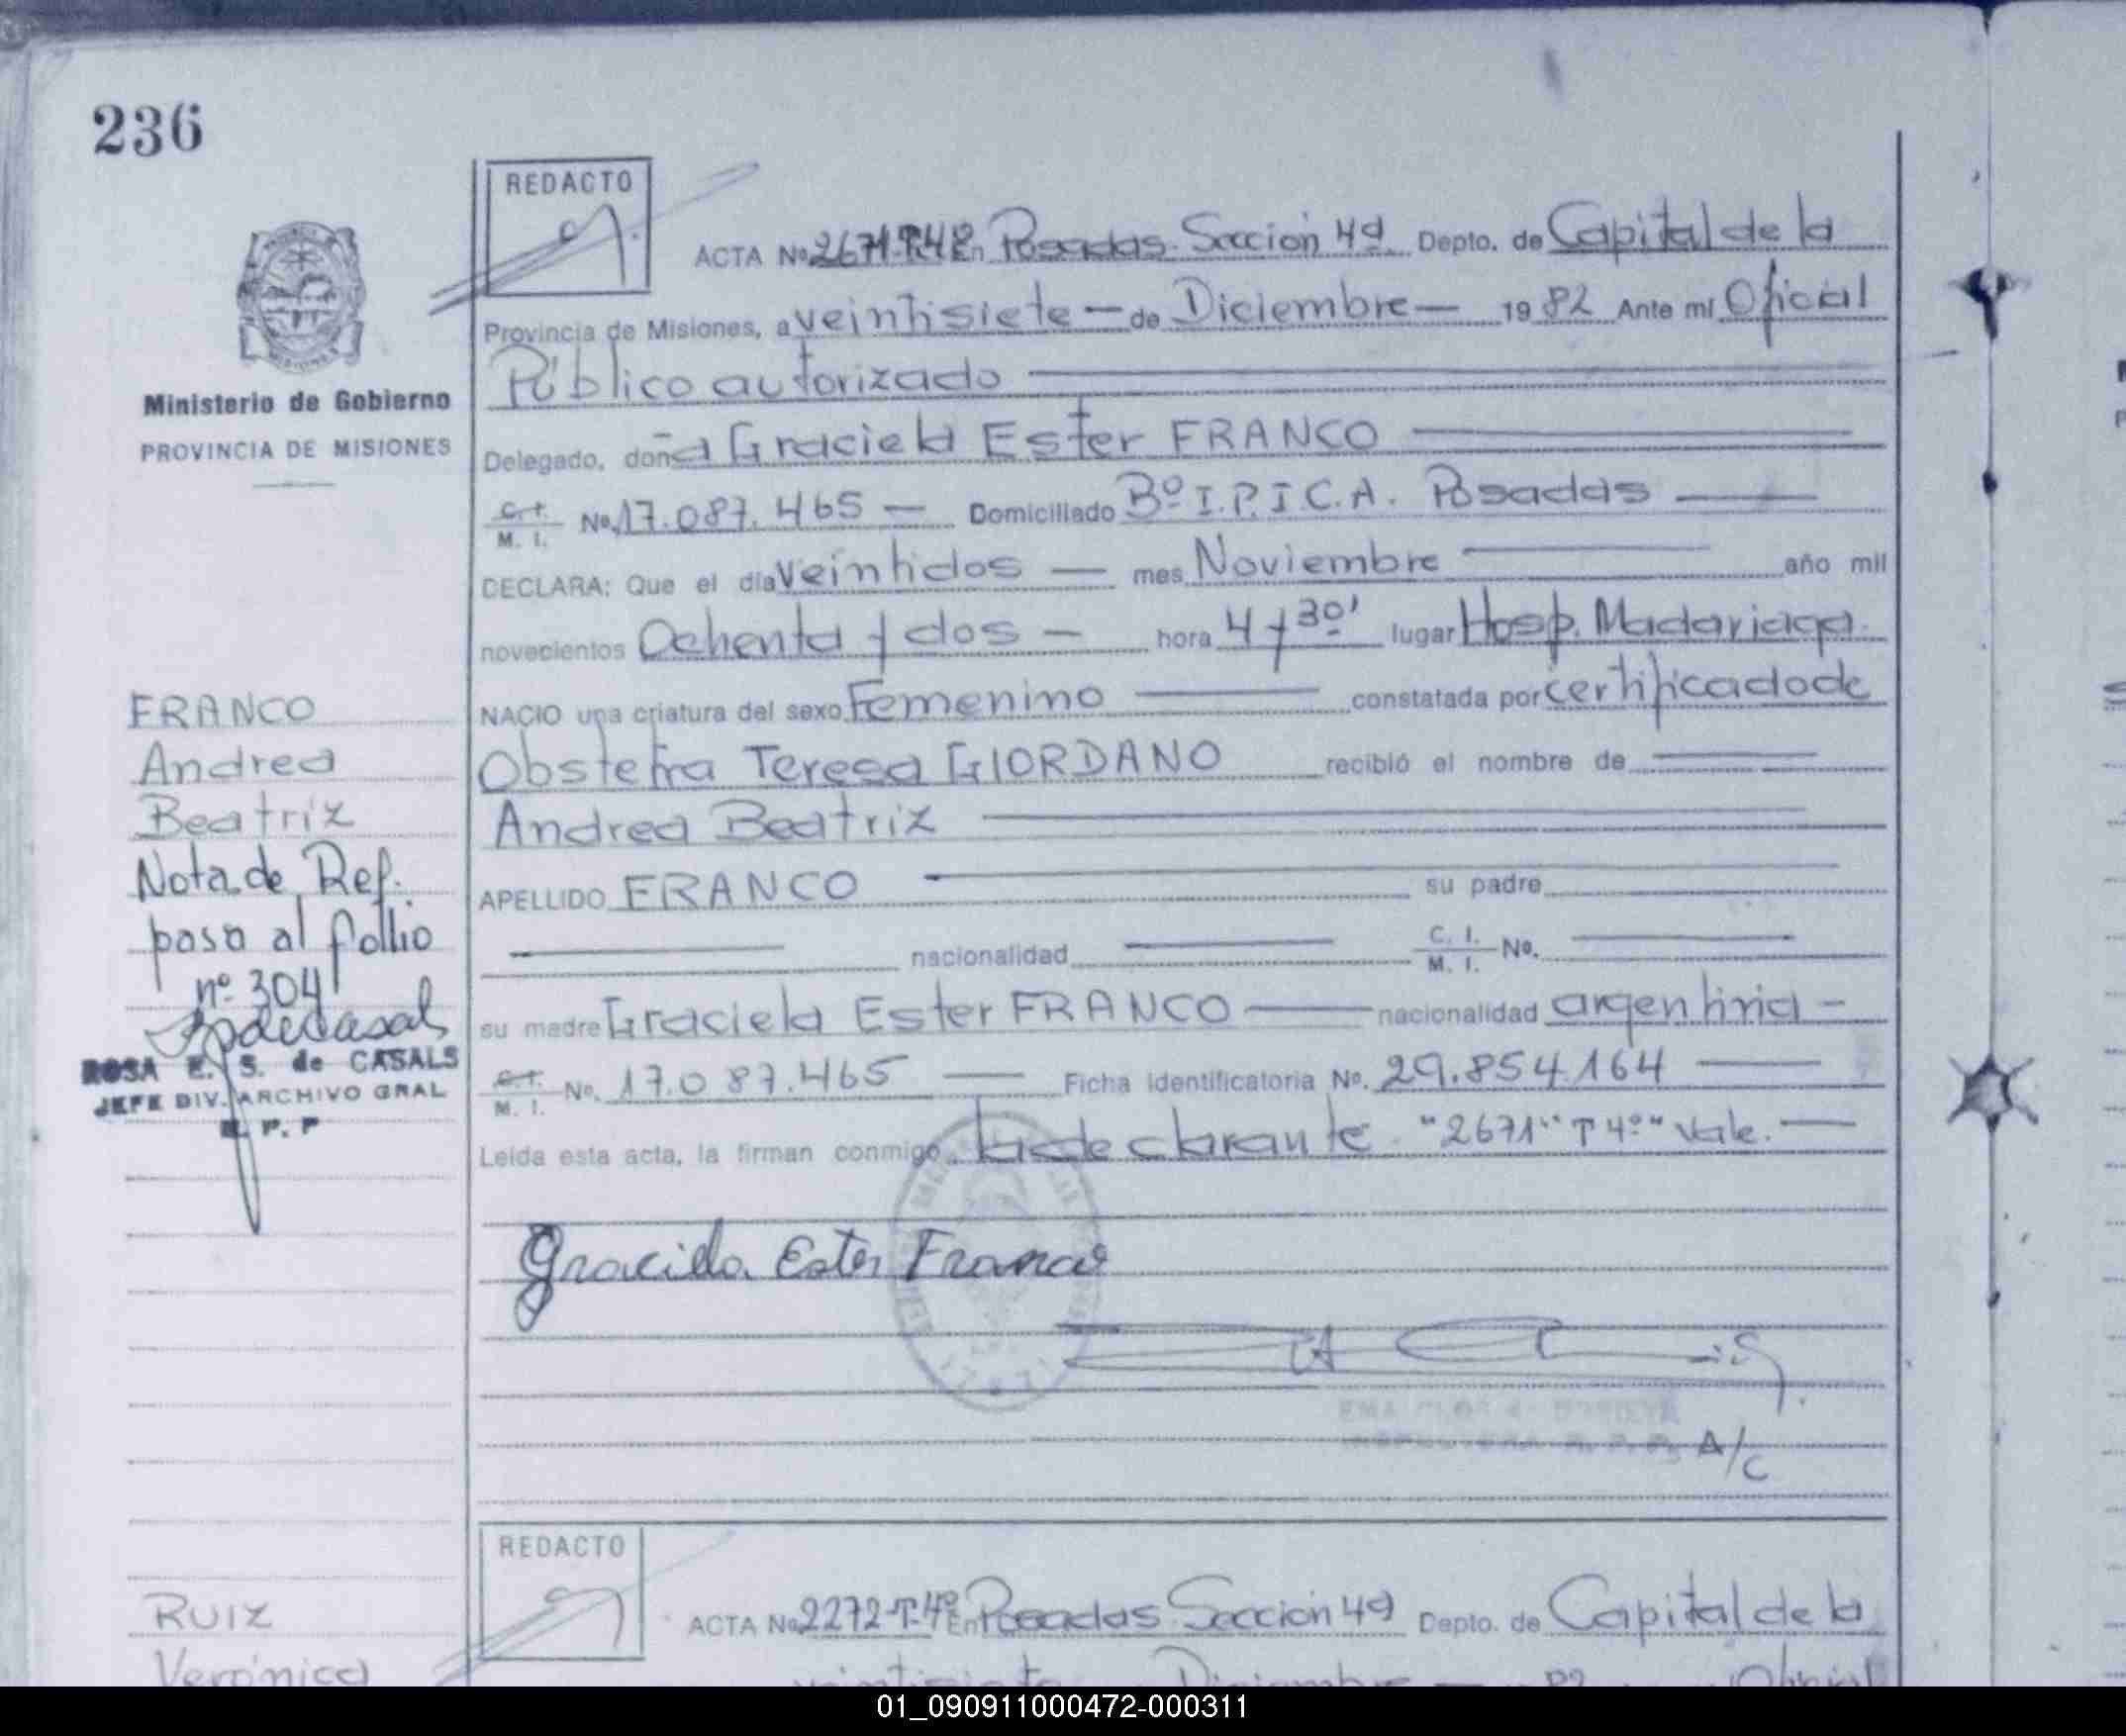 236
REDACTO
ACTA No 2671-T.4º En Posadas Sección 4ª Depto. de Capital de la
Provincia de Misiones, a veintisiete — de Diciembre — 1982 Ante mí Oficial
Público autorizado
Ministerio de Gobierno
PROVINCIA DE MISIONES
Delegado, doña Graciela Ester FRANCO
C.I. M. I. No. 17.087.465 — Domiciliado Bº I.P.I.C.A. Posadas
DECLARA: Que el día veintidos — mes Noviembre año mil
novecientos Ochenta y dos — hora 4 y 30' lugar Hosp. Madariaga.
NACIO una criatura del sexo Femenino constatada por certificado de
Obstetra Teresa GIORDANO recibió el nombre de
Andrea Beatriz
APELLIDO FRANCO su padre
nacionalidad C. I. M. I. No.
su madre Graciela Ester FRANCO nacionalidad argentina -
C.I. M. I. No. 17.087.465 — Ficha identificatoria No. 29.854.164
Leída esta acta, la firman conmigo la declarante. "2671" "T 4º" Vale. —
FRANCO
Andrea
Beatriz
Nota de Ref.
pasa al follio
nº 304
ROSA E. S. de CASALS
JEFE DIV. ARCHIVO GRAL
R. P. P
Graciela Ester Franco
A/C
REDACTO
ACTA No 2272-T-4º En Posadas Sección 4ª Depto. de Capital de la
veintisiete Diciembre — 82 Oficial
RUIZ
Verónica
01_090911000472-000311